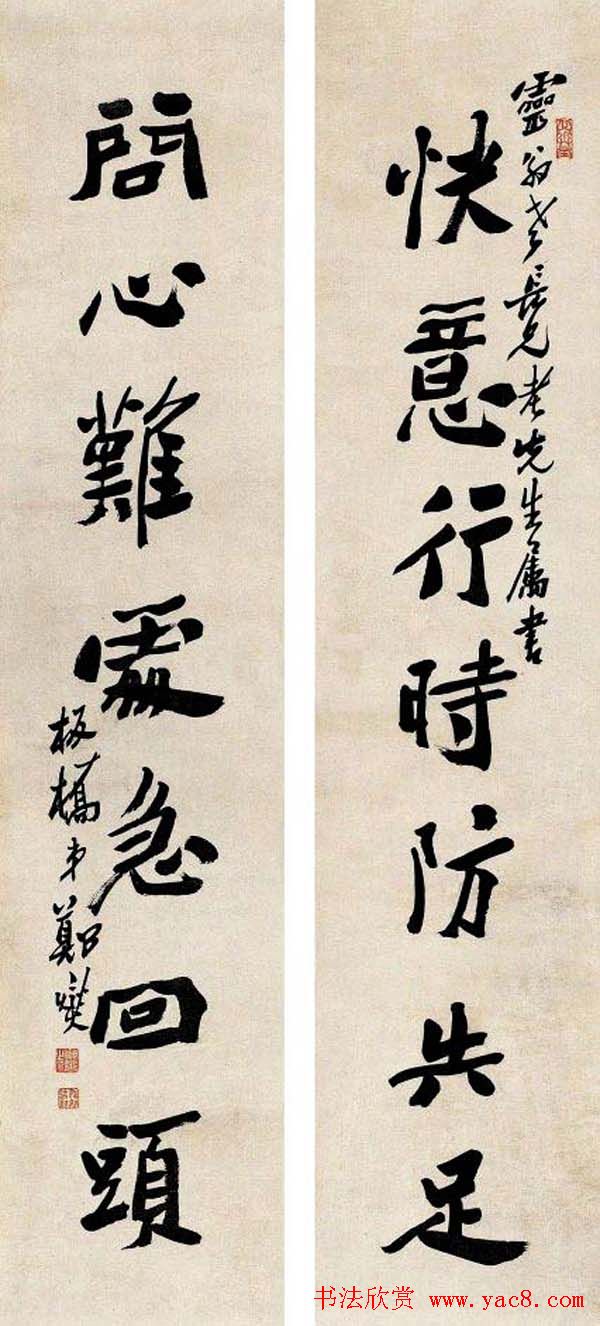 靈翁長兄老先生屬書
快意行時防失足
問心難處急回頭
板橋弟鄭燮
书法欣赏 www.yac8.com